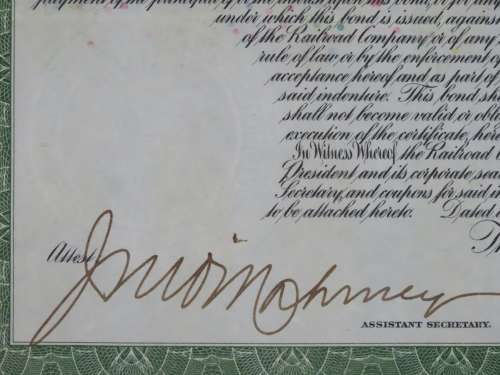 payment of the principal, or of the interest upon this bond, or for any
under which this bond is issued, against
of the Railroad Company, or of any
rule of law, or by the enforcement of
acceptance hereof and as part of
said indenture. This bond shal
shall not become valid or obli
execution of the certificate, her
In Witness Whereof the Railroad C
President and its corporate sea
Secretary, and coupons for said in
to be attached hereto. Dated
Th
Attest
ASSISTANT SECRETARY.